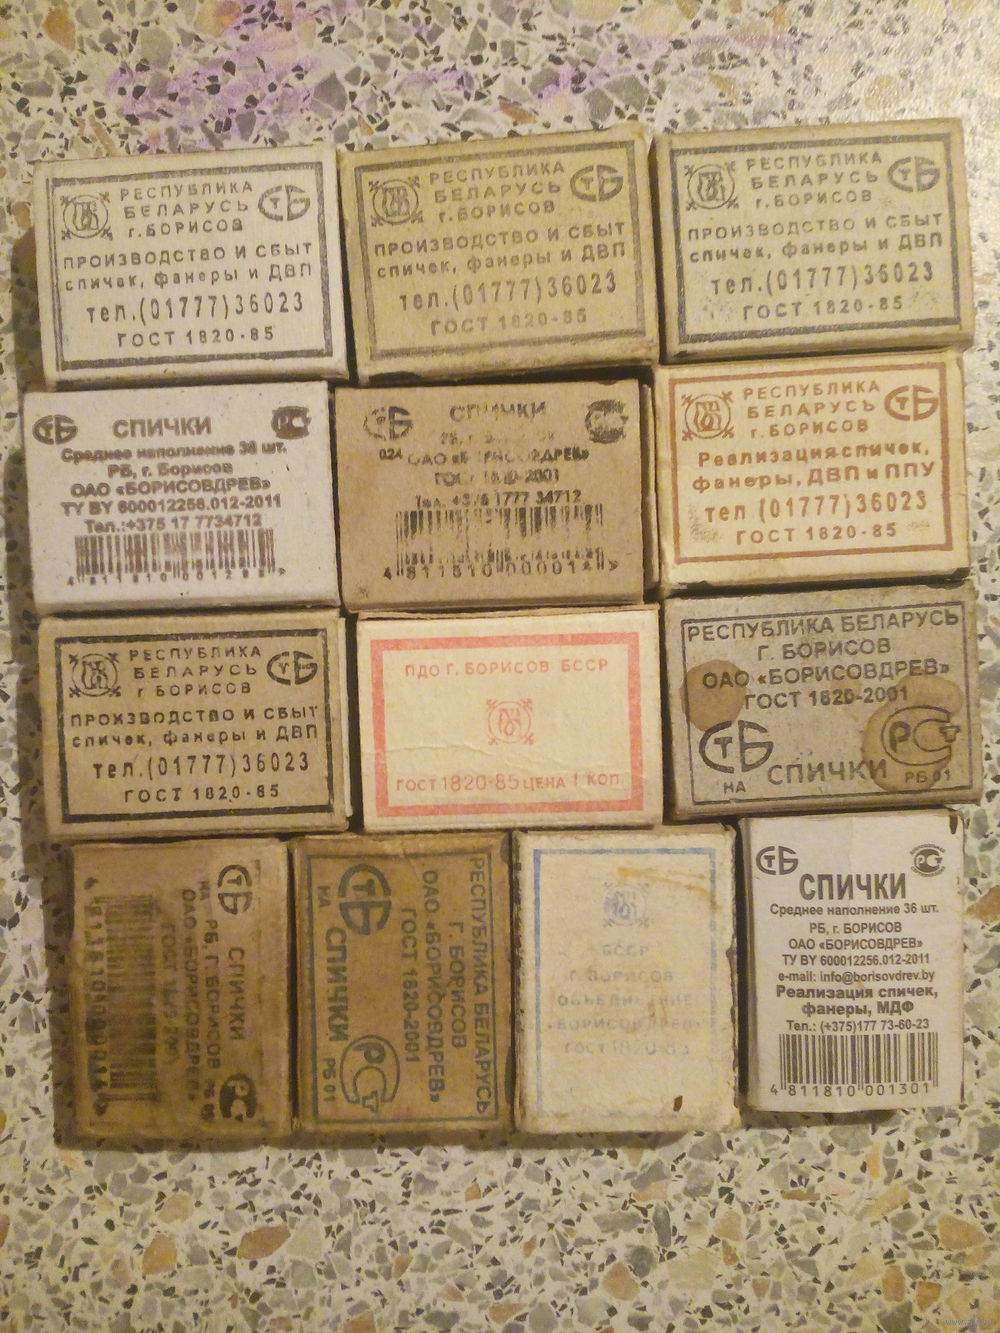 РЕСПУБЛИКА
БЕЛАРУСЬ
г. БОРИСОВ
СТБ
ПРОИЗВОДСТВО И СБЫТ
спичек, фанеры и ДВП
тел.(01777)36023
ГОСТ 1820-85
РЕСПУБЛИКА
БЕЛАРУСЬ
г. БОРИСОВ
СТБ
ПРОИЗВОДСТВО И СБЫТ
спичек, фанеры и ДВП
тел.(01777)36023
ГОСТ 1820-85
РЕСПУБЛИКА
БЕЛАРУСЬ
г. БОРИСОВ
СТБ
ПРОИЗВОДСТВО И СБЫТ
спичек, фанеры и ДВП
тел.(01777)36023
ГОСТ 1820-85
СТБ
СПИЧКИ
РСТ
Среднее наполнение 36 шт.
РБ, г. Борисов
ОАО «БОРИСОВДРЕВ»
ТУ BY 600012256.012-2011
Тел.:+375 17 7734712
СТБ
СПИЧКИ
024
РБ, г. БОРИСОВ
ОАО «БОРИСОВДРЕВ»
ГОСТ 1820-2001
Тел. +375 1777 34712
РЕСПУБЛИКА
БЕЛАРУСЬ
г. БОРИСОВ
СТБ
Реализация спичек,
фанеры, ДВП и ППУ
тел (01777)36023
ГОСТ 1820-85
РЕСПУБЛИКА
БЕЛАРУСЬ
г БОРИСОВ
СТБ
ПРОИЗВОДСТВО И СБЫТ
спичек, фанеры и ДВП
тел.(01777)36023
ГОСТ 1820-85
ПДО Г. БОРИСОВ БССР
ГОСТ 1820-85 ЦЕНА 1 КОП.
РЕСПУБЛИКА БЕЛАРУСЬ
Г. БОРИСОВ
ОАО «БОРИСОВДРЕВ»
ГОСТ 1820-2001
СТБ
НА
СПИЧКИ
РСТ
РБ 01
СТБ
НА
СПИЧКИ
РБ, Г. БОРИСОВ
ОАО «БОРИСОВДРЕВ»
РСТ
РЕСПУБЛИКА БЕЛАРУСЬ
Г. БОРИСОВ
ОАО «БОРИСОВДРЕВ»
ГОСТ 1820-2001
СТБ
НА
СПИЧКИ
РСТ
РБ 01
БССР
Г. БОРИСОВ
ОБЪЕДИНЕНИЕ
«БОРИСОВДРЕВ»
ГОСТ 1820-85
СТБ
РСТ
СПИЧКИ
Среднее наполнение 36 шт.
РБ, г. БОРИСОВ
ОАО «БОРИСОВДРЕВ»
ТУ BY 600012256.012-2011
e-mail: info@borisovdrev.by
Реализация спичек,
фанеры, МДФ
Тел.: (+375)177 73-60-23
4 811810 001301